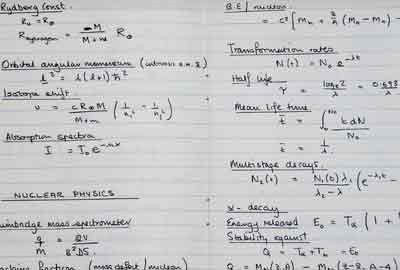 Rydberg Const.
R₀ = R∞
R_hydrogen = M / (M + m) R∞
Orbital angular momentum (
l² = l(l+1)ħ²
Isotope shift.
υ = cR∞M / (M+m) (1/n₁² - 1/n₂²)
Absorption spectra
I = I₀e
NUCLEAR PHYSICS
mass spectrometer
q/M = 2V / B²DS
fraction (mass defect / nucleon)
B.E / nucleon
= c² [ Mₙ + (Mₙ - Mₙ) -
Transformation rates
N(t) = N₀ e^-λt
Half life
τ = logₑ2 / λ = 0.693
Mean life time
t̄ = ∫₀^N₀ t dN / N₀
t̄ = 1/λ
Multistage decays.
N₂(t) = N₁(0) λ₁ / (λ₂ - λ) (e^-λ₁t -
α - decay
Energy released E₀ = Tα (1 +
Stability against
Q = Tα + Tₕ = E₀
Q = Mₙ(Z,A) - Mₙ(Z-2, A-4)